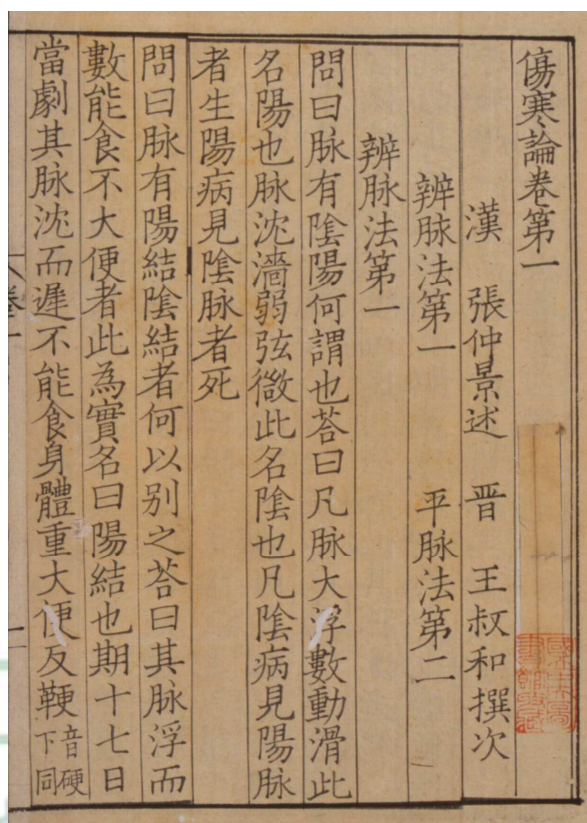 傷寒論卷第一
漢 張仲景述 晋 王叔和撰次
辨脉法第一 平脉法第二
辨脉法第一
問曰脉有陰陽何謂也荅曰凡脉大浮數動滑此
名陽也脉沈濇弱弦微此名陰也凡陰病見陽脉
者生陽病見陰脉者死
問曰脉有陽結陰結者何以别之荅曰其脉浮而
數能食不大便者此為實名曰陽結也期十七日
當劇其脉沈而遲不能食身體重大便反鞕音硬下同